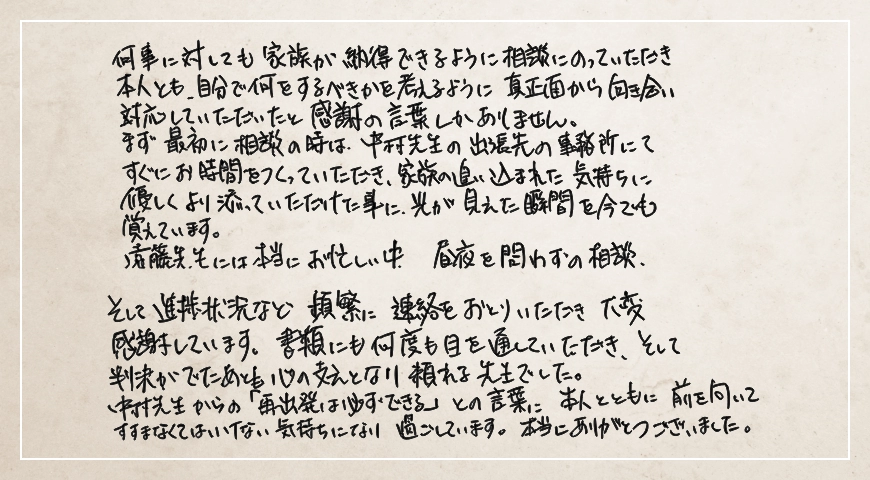 何事に対しても 家族が 納得できるように相談にのっていただき
本人とも、自分で何をするべきかを考えるように 真正面から向き合い
対応していただいたと 感謝の言葉しかありません。
まず 最初に相談の時は、中村先生の出張先の事務所にて
すぐにお時間をつくっていただき、家族の追い込まれた気持ちに
優しくより添っていただけた事に、光が見えた瞬間を今でも
覚えています。
斎藤先生には本当にお忙しい中 昼夜を問わずの相談、
そして進捗状況など 頻繁に 連絡をおとりいただき 大変
感謝しています。書類にも何度も目を通していただき、そして
判決がでたあとも心の支えとなり 頼れる先生でした。
中村先生からの「再出発は必ずできる」との言葉に 本人とともに 前を向いて
すすまなくてはいけない気持ちになり 過ごしています。本当にありがとうございました。